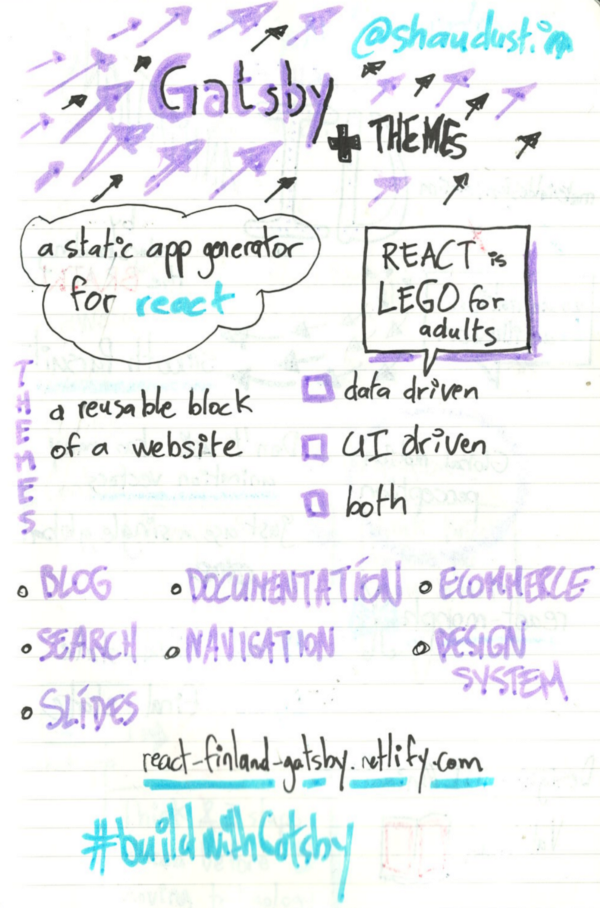 @shaudustin
Gatsby
+ THEMES
a static app generator
for react
REACT is
LEGO for
adults
THEMES
a reusable block
of a website
data driven
UI driven
both
BLOG
DOCUMENTATION
ECOMMERCE
SEARCH
NAVIGATION
DESIGN
SYSTEM
SLIDES
react-finland-gatsby.netlify.com
#buildwithGatsby